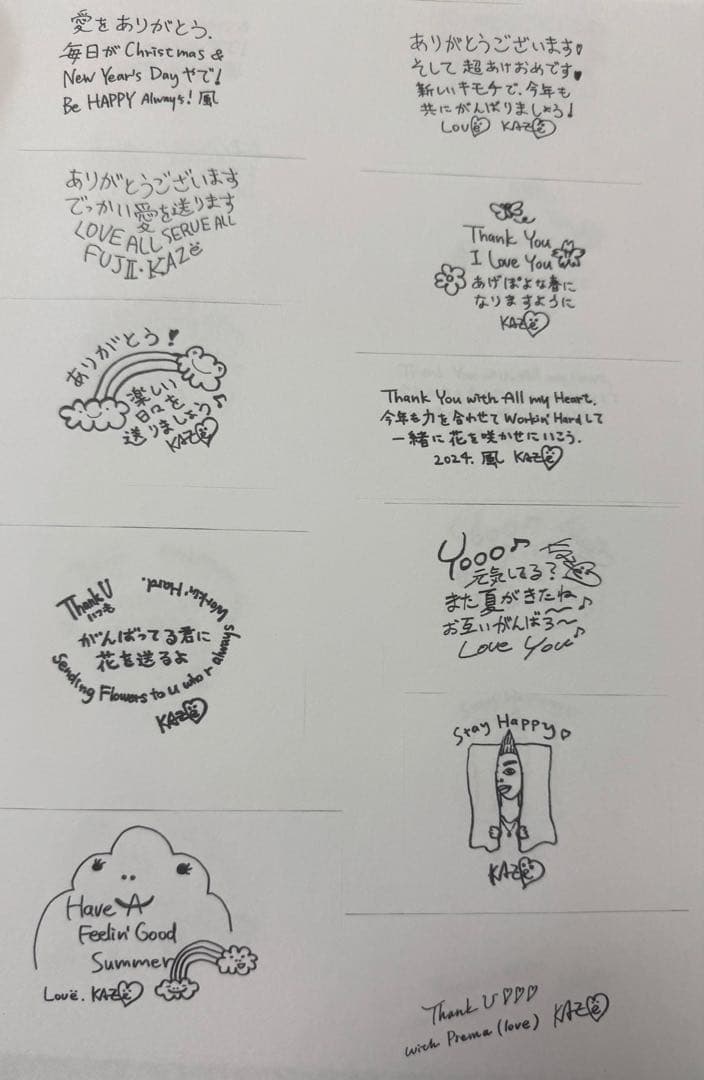 愛をありがとう.
毎日が Christmas &
New Year's Day やで!
Be HAPPY Always! 風
ありがとうございます
でっかい愛を送ります
LOVE ALL SERVE ALL
FUJII・KAZë
ありがとう!
楽しい
日々を
送りましょう♪
KAZë
Thank U
いつも
Workin' Hard.
がんばってる君に
花を送るよ
Sending Flowers to U who r always
KAZë
Have A
Feelin' Good
Summer
Lovë. KAZë
ありがとうございます♥
そして超あけおめです♥
新しいキモチで、今年も
共にがんばりましょろ!
LOVë KAZë
Thank You
I Love You
あげぽよな春に
なりますように
KAZë
Thank You with All my Heart.
今年も力を合わせて Workin' Hard して
一緒に花を咲かせにいこう.
2024. 風 KAZë
Yooo♪
元気してる?
また夏がきたね〜♪
お互いがんばろ〜♪
Love You
Stay Happy♡
KAZë
Thank U♡♡♡
with Prema (love) KAZë